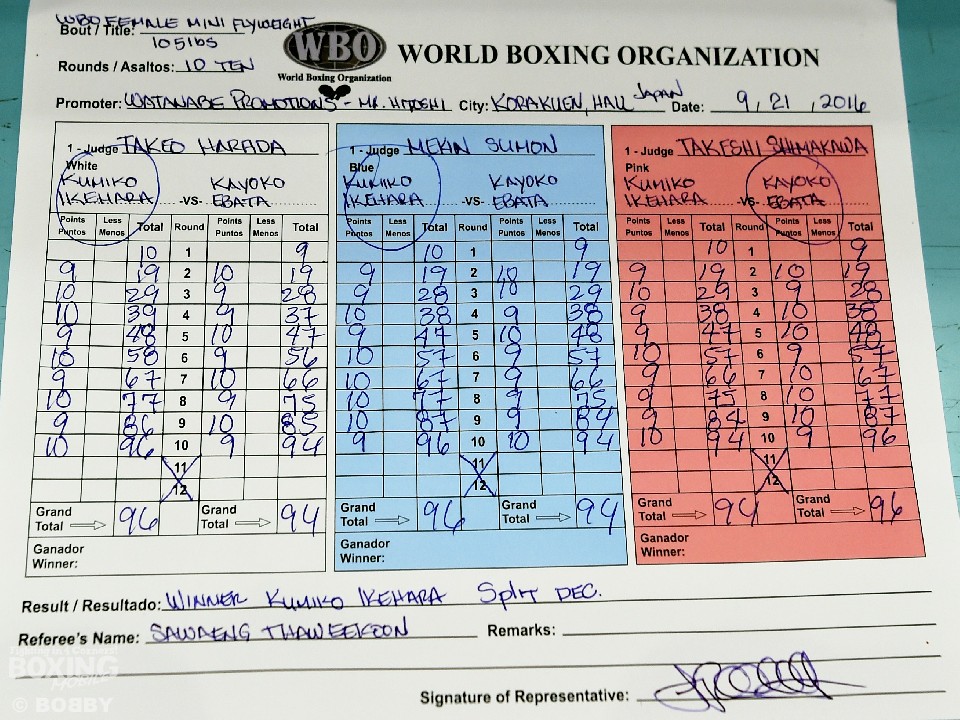 WBO FEMALE MINI FLYWEIGHT
Bout / Title: 105 lbs
Rounds / Asaltos: 10 TEN
WBO
World Boxing Organization
WORLD BOXING ORGANIZATION
Promoter: WATANABE PROMOTIONS - MR. HITOSHI City: KORAKUEN, HALL JAPAN Date: 9, 21, 2016
1 - Judge TAKEO HARADA 1 - Judge MEKIN SUMON 1 - Judge TAKESHI SHIMAKAWA
White Blue Pink
KUMIKO KAYOKO KUMIKO KAYOKO KUMIKO KAYOKO
IKEHARA -VS- EBATA IKEHARA -VS- EBATA IKEHARA -VS- EBATA
Points Less Total Round Points Less Total Points Less Total Round Points Less Total Points Less Total Round Points Less Total
Puntos Menos Puntos Menos Puntos Menos Puntos Menos Puntos Menos Puntos Menos
10 1 9 10 1 9 10 1 9
9 19 2 10 19 9 19 2 10 19 9 19 2 10 19
10 29 3 9 28 9 28 3 10 29 10 29 3 9 28
10 39 4 9 37 10 38 4 9 38 9 38 4 10 38
9 48 5 10 47 9 47 5 10 48 9 47 5 10 48
10 58 6 9 56 10 57 6 9 57 10 57 6 9 57
9 67 7 10 66 10 67 7 9 66 9 66 7 10 67
10 77 8 9 75 10 77 8 9 75 9 75 8 10 77
9 86 9 10 85 10 87 9 9 84 9 84 9 10 87
10 96 10 9 94 9 96 10 10 94 10 94 10 9 96
11 11 11
12 12 12
Grand Total 96 Grand Total 94 Grand Total 96 Grand Total 94 Grand Total 94 Grand Total 96
Ganador Ganador Ganador
Winner: Winner: Winner:
Result / Resultado: WINNER KUMIKO IKEHARA Split DEC.
Referee's Name: SAWAENG THAWEEKOON Remarks:
Signature of Representative:
BOXING
MOBILE
© BOBBY